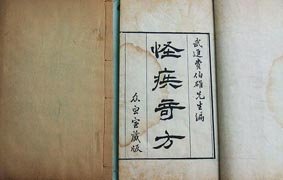 武進費伯雄先生編
怪疾奇方
众宜室藏版